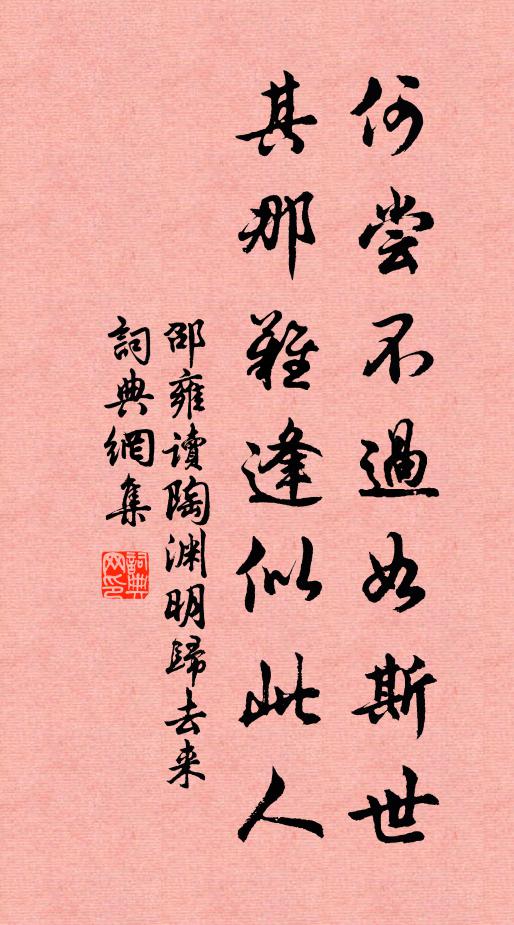 何尝不過如斯世
其那難逢似此人
邵雍读陶渊明歸去来
詞典網集
詞典网印